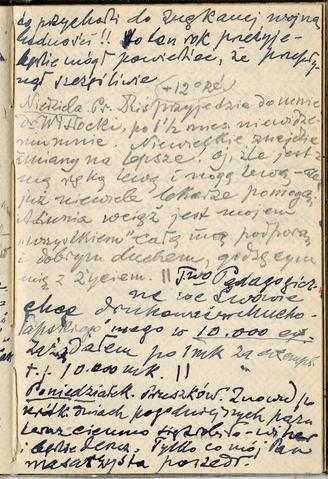 co przychodzi do znękanej wojną
ludności!! Po ten rok przeżyje-
będzie mógł powiedzieć, że przepły-
nął szczęśliwie
(+12° Ré)
Niedziela Pr. Dziś przyjedzie do mnie
Dr Wisłocki, po 1½ mies. niewidze-
niu mnie. Niewielkie znajdzie
zmiany na lepsze. Oj, źle jest z
mą ręką lewą i nogą lewą - ale
już niewiele lekarze pomogą!
Annia wciąż jest mojem
"wszystkiem". Całą mą podporą
i dobrym duchem, godzącym
mię z życiem. || T-wo Pedagogicz-
ne we Lwowie
chce drukować
mego w 10.000 eg.
Zażądałem po 1 mk za exempl.
t.j. 10.000 mk. ||
Poniedziałek. Pruszków. Znowu po
krótkich dniach pogodniejszych paru
teraz ciemno się zrobiło - wicher
i będzie deszcz. Tylko co mój Pan
masażysta poszedł.